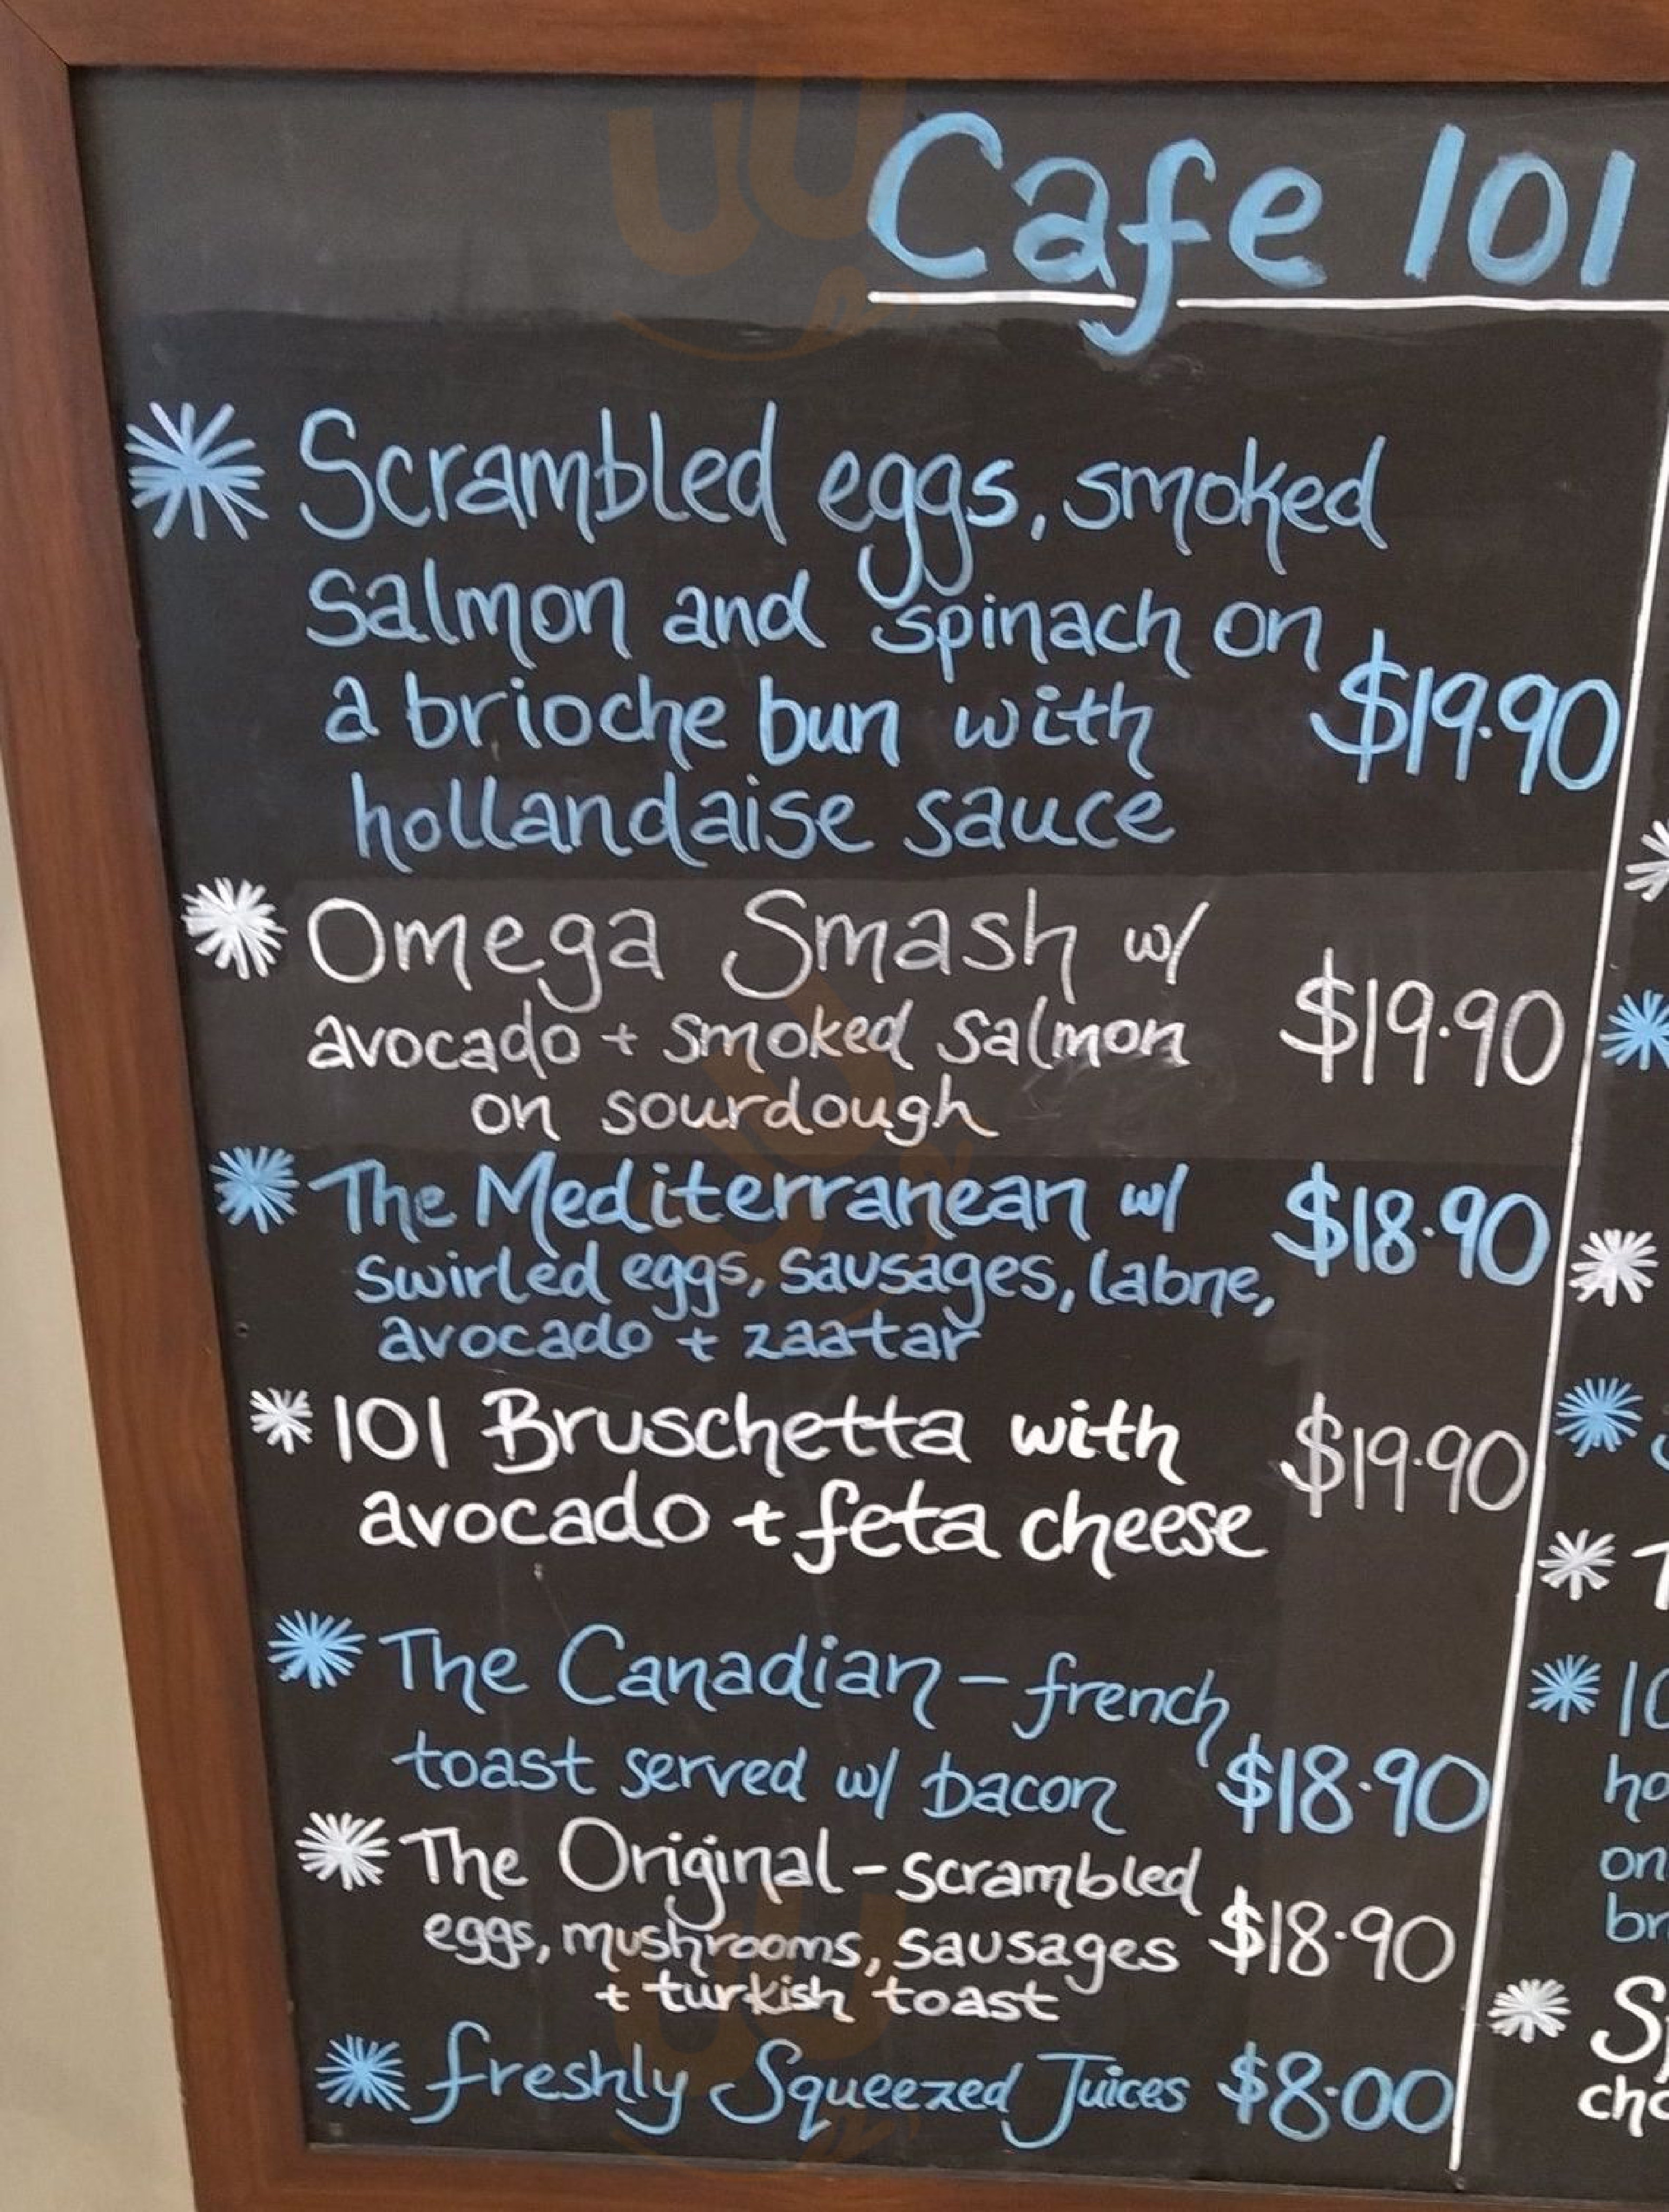 Cafe 101
Scrambled eggs, smoked
salmon and spinach on
a brioche bun with $19.90
hollandaise sauce
Omega Smash w/
avocado + smoked salmon $19.90
on sourdough
The Mediterranean w/ $18.90
swirled eggs, sausages, labne,
avocado + zaatar
101 Bruschetta with $19.90
avocado + feta cheese
The Canadian - french
toast served w/ bacon $18.90
The Original - scrambled
eggs, mushrooms, sausages $18.90
+ turkish toast
freshly Squeezed Juices $8.00